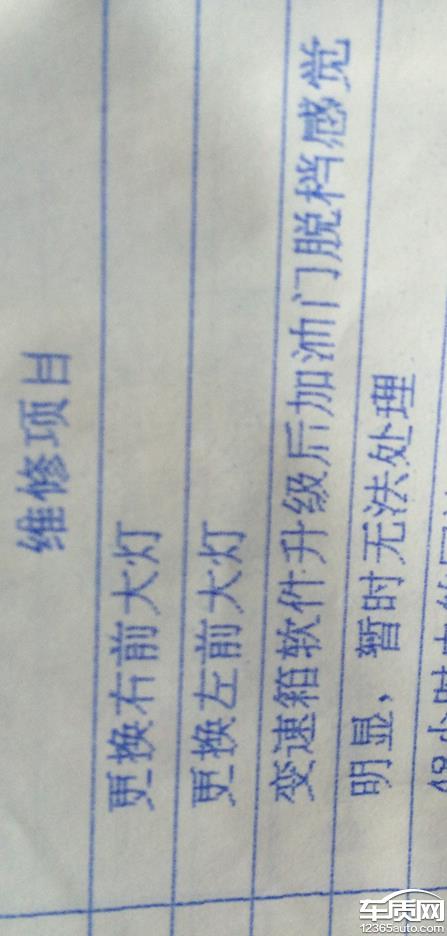 维修项目
更换右前大灯
更换左前大灯
变速箱软件升级后加油门脱档感觉
明显，暂时无法处理
车质网
12365auto.com